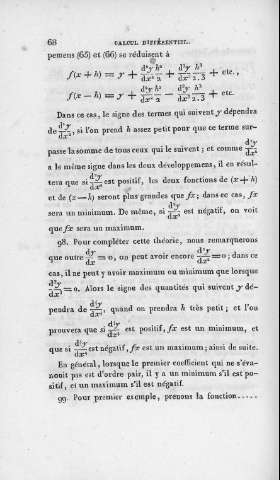 68 CALCUL DIFFÉRENTIEL.
pemens (65) et (66) se réduisent à
f(x + h) = y + d²y/dx² h²/2 + d³y/dx³ h³/2.3 + etc.,
f(x − h) = y + d²y/dx² h²/2 − d³y/dx³ h³/2.3 + etc.
Dans ce cas, le signe des termes qui suivent y dépendra
de d²y/dx², si l'on prend h assez petit pour que ce terme sur-
passe la somme de tous ceux qui le suivent ; et comme d²y/dx²
a le même signe dans les deux développemens, il en résul-
tera que si d²y/dx² est positif, les deux fonctions de (x + h)
et de (x − h) seront plus grandes que fx ; dans ce cas, fx
sera un minimum. De même, si d²y/dx² est négatif, on voit
que fx sera un maximum.
98. Pour compléter cette théorie, nous remarquerons
que outre dy/dx = 0, on peut avoir encore d²y/dx² = 0 ; dans ce
cas, il ne peut y avoir maximum ou minimum que lorsque
d³y/dx³ = 0. Alors le signe des quantités qui suivent y dé-
pendra de d⁴y/dx⁴, quand on prendra h très petit ; et l'on
prouvera que si d⁴y/dx⁴ est positif, fx est un minimum, et
que si d⁴y/dx⁴ est négatif, fx est un maximum ; ainsi de suite.
En général, lorsque le premier coefficient qui ne s'éva-
nouit pas est d'ordre pair, il y a un minimum s'il est po-
sitif, et un maximum s'il est négatif.
99. Pour premier exemple, prenons la fonction.....